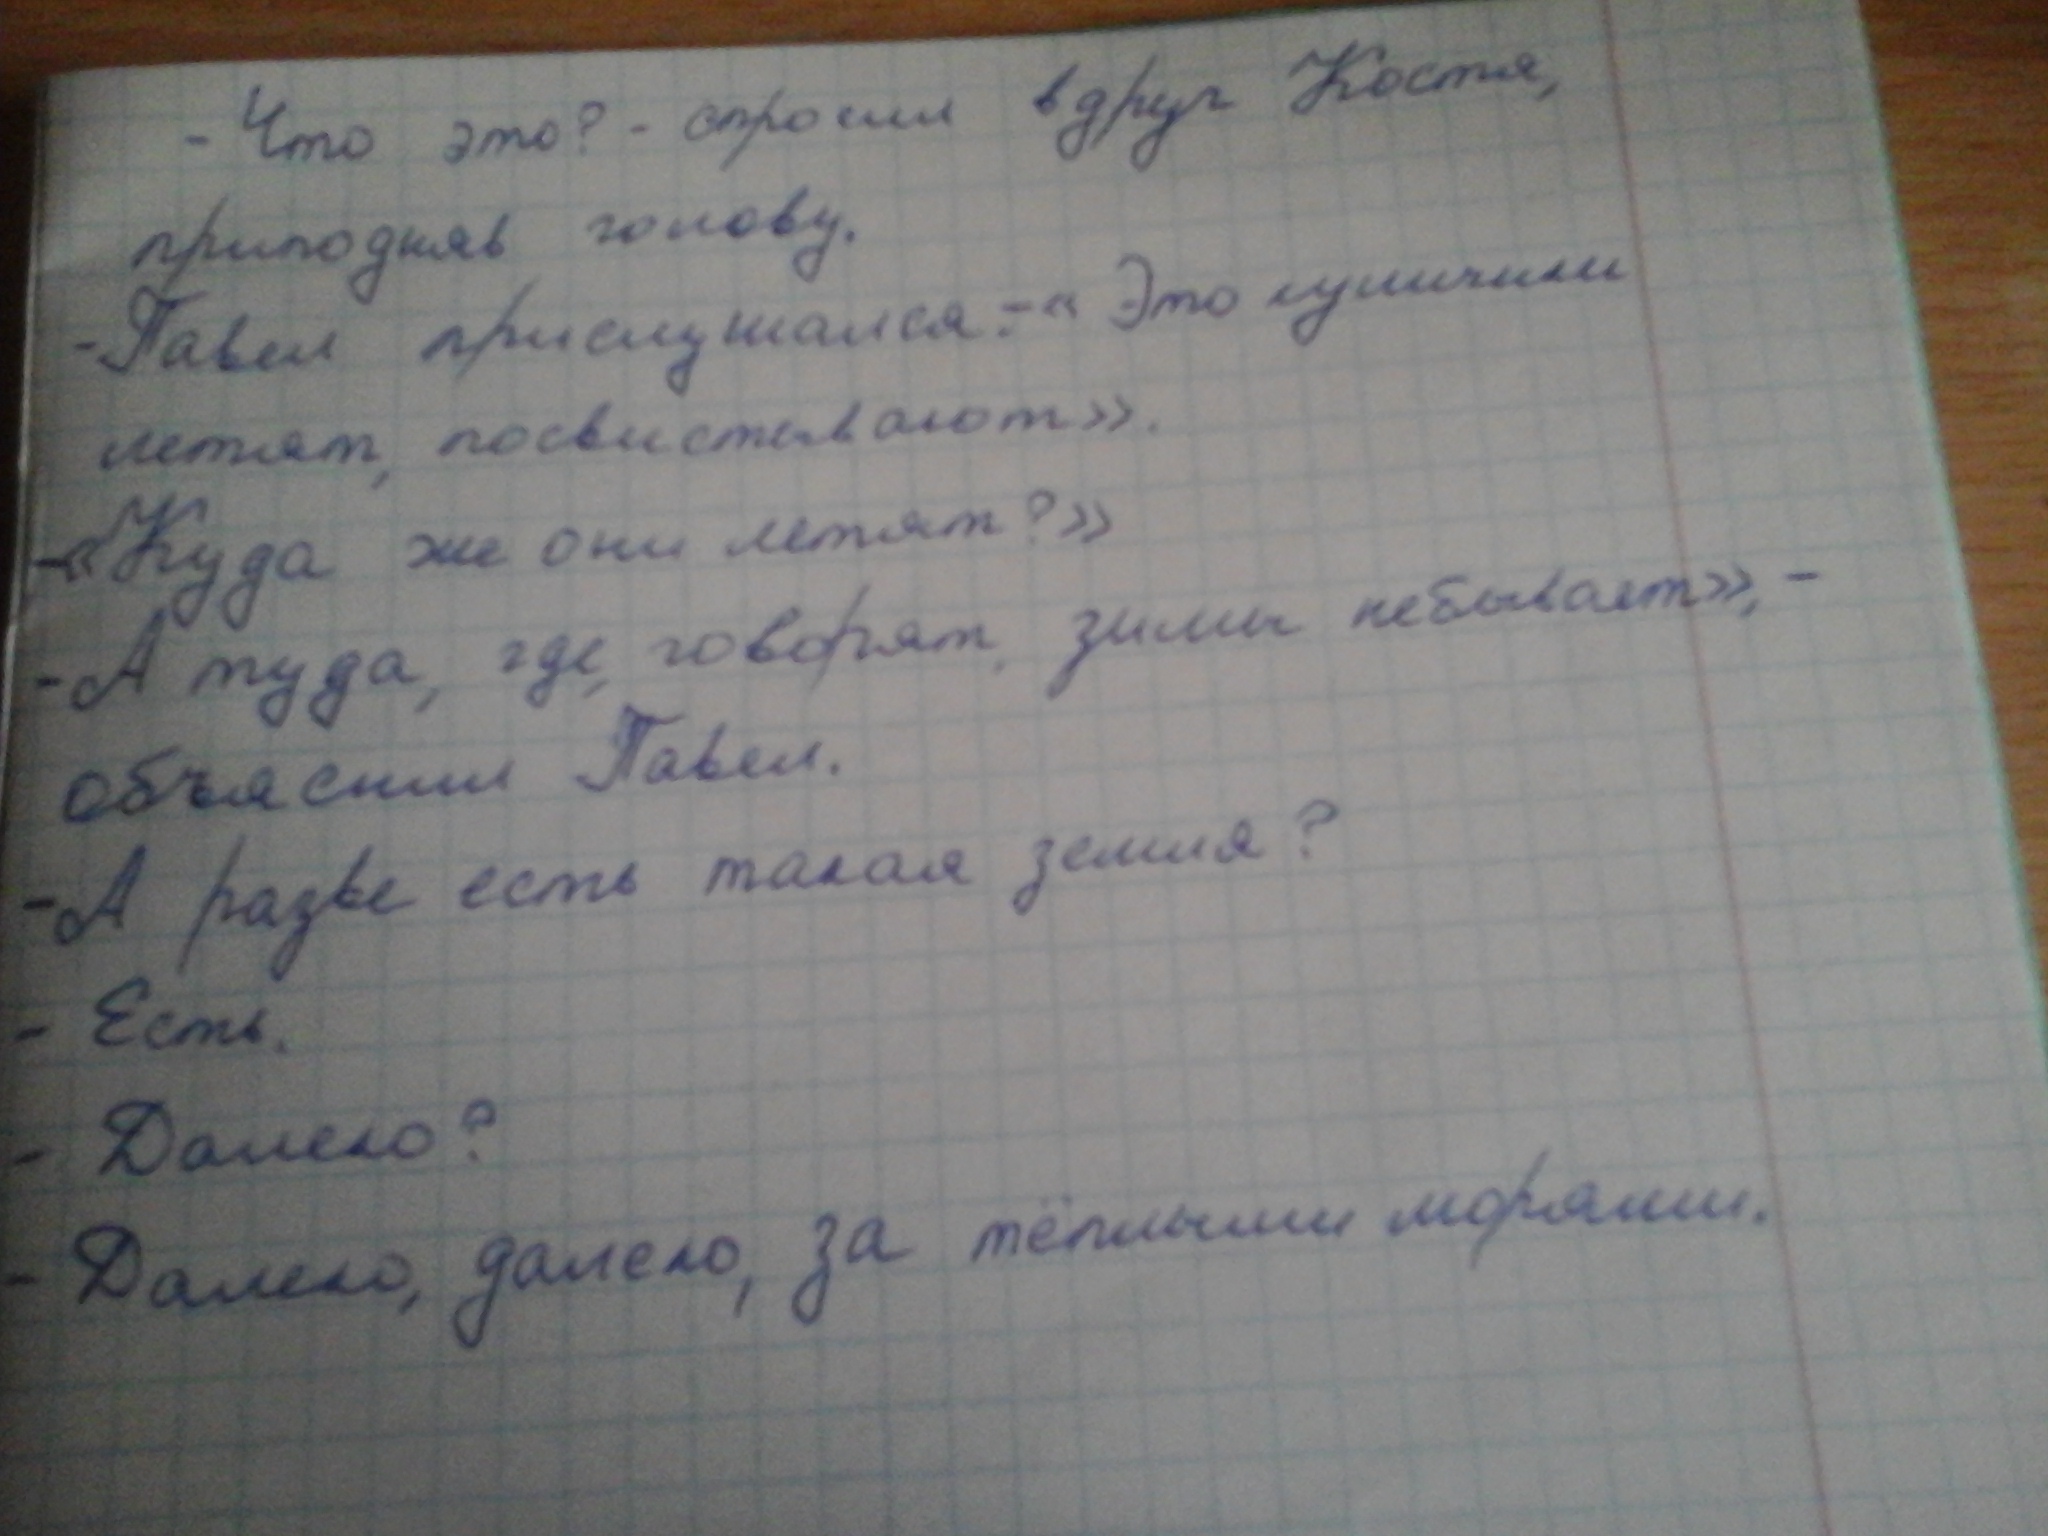 - Что это? - спросил вдруг Костя,
приподняв голову.
- Павел прислушался: - « Это куличики
летят, посвистывают».
- «Куда же они летят?»
- А туда, где, говорят, зимы небывает», -
объяснил Павел.
- А разве есть такая земля?
- Есть.
- Далеко?
- Далеко, далеко, за тёплыми морями.